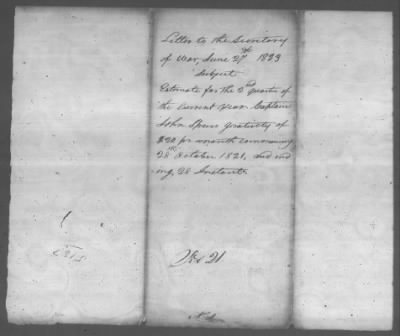 Letter to the Secretary
of War, June 27th 1823
Subject
Estimate for the 3d quarter of
the current year Captain
John gratuity of
$20 per month commencing
28th October 1821, and end
ing, 28 Instant.
No 21